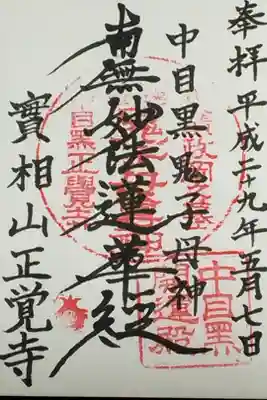 奉拝 平成二十九年五月七日
中目黒鬼子母神
南無妙法蓮華経
實相山正覚寺
中目黑
目黒正覺寺